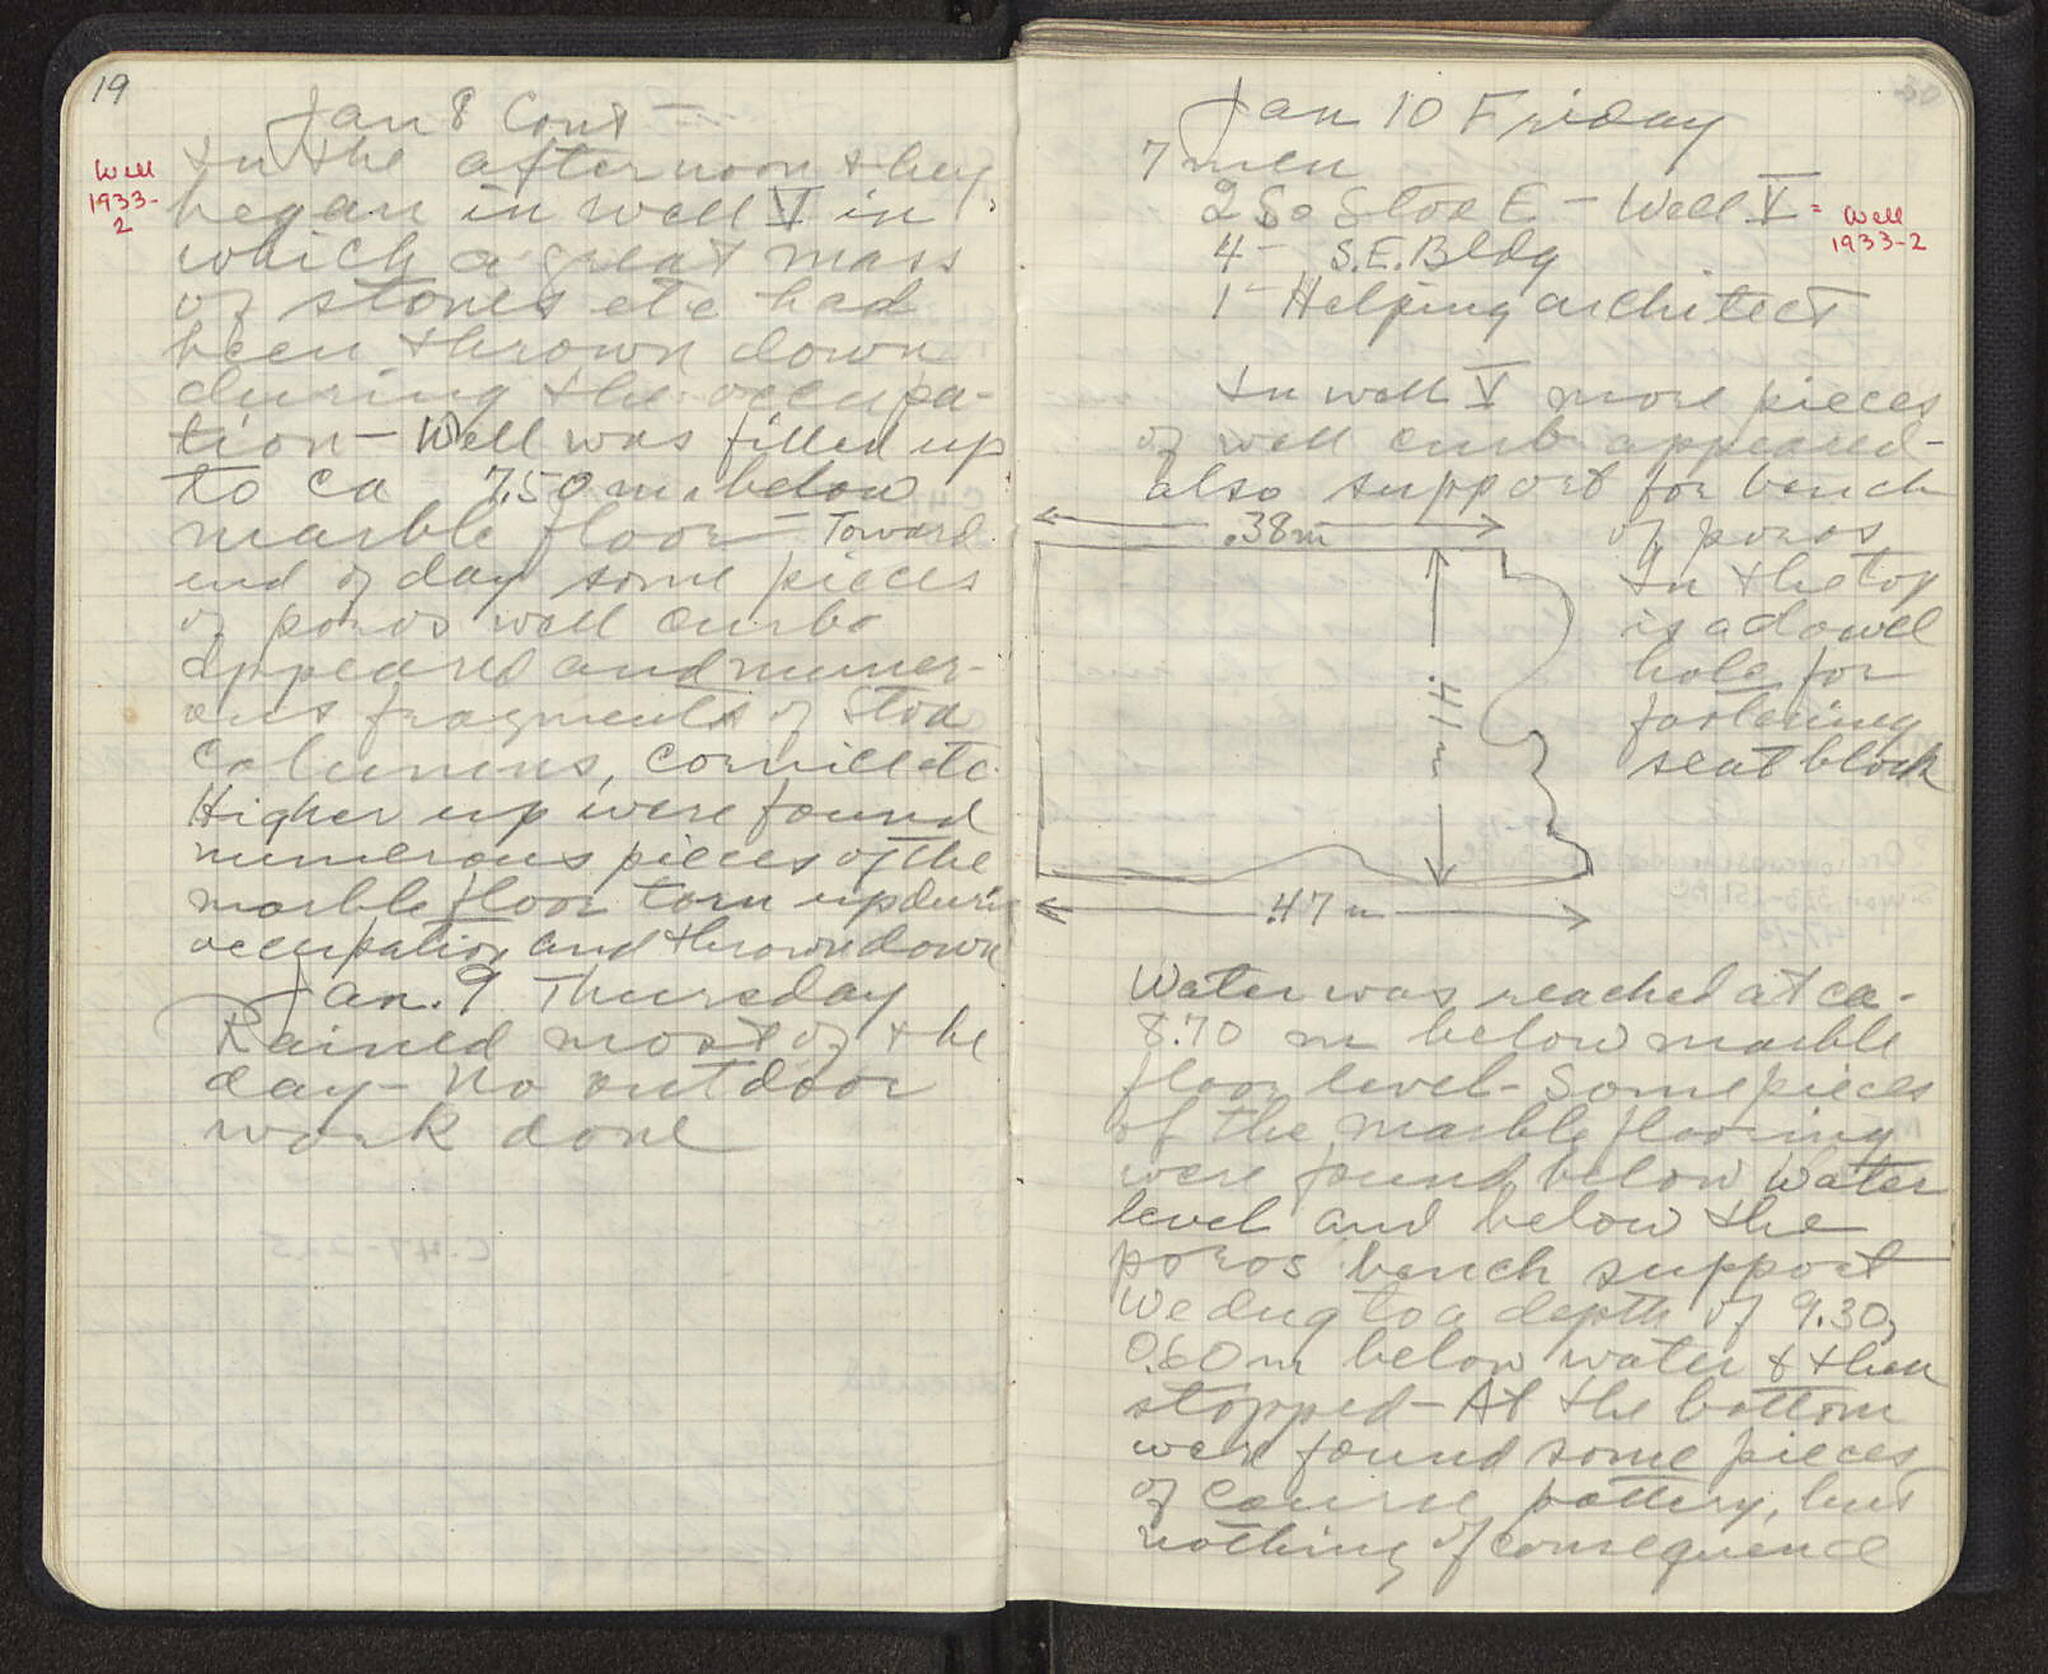 19
Jan 8 Cont —
Well
1933-
2
In the afternoon they
began in well V in
which a great mass
of stones etc had
been thrown down
during the occupa-
tion – Well was filled up
to ca 7.50 m. below
marble floor – Toward
end of day some pieces
of poros well curb
appeared and numer-
ous fragments of Stoa
columns, cornice etc.
Higher up were found
numerous pieces of the
marble floor torn up durin
occupation and thrown down
Jan. 9 Thursday
Rained most of the
day – no outdoor
work done
Jan 10 Friday
7 men
2 So Stoa E – Well V = Well
1933-2
4 – S.E. Bldg
1 – Helping architect
In well V more pieces
of well curb appeared –
also support for bench
of poros
.38m
In the top
is a dowel
hole for
fastening
seat block
.47 m
Water was reached at ca.
8.70 m below marble
floor level – Some pieces
of the marble flooring
were found below water
level and below the
poros bench support
We dug to a depth of 9.30,
0.60 m below water & then
stopped – At the bottom
were found some pieces
of course pottery, but
nothing of consequence